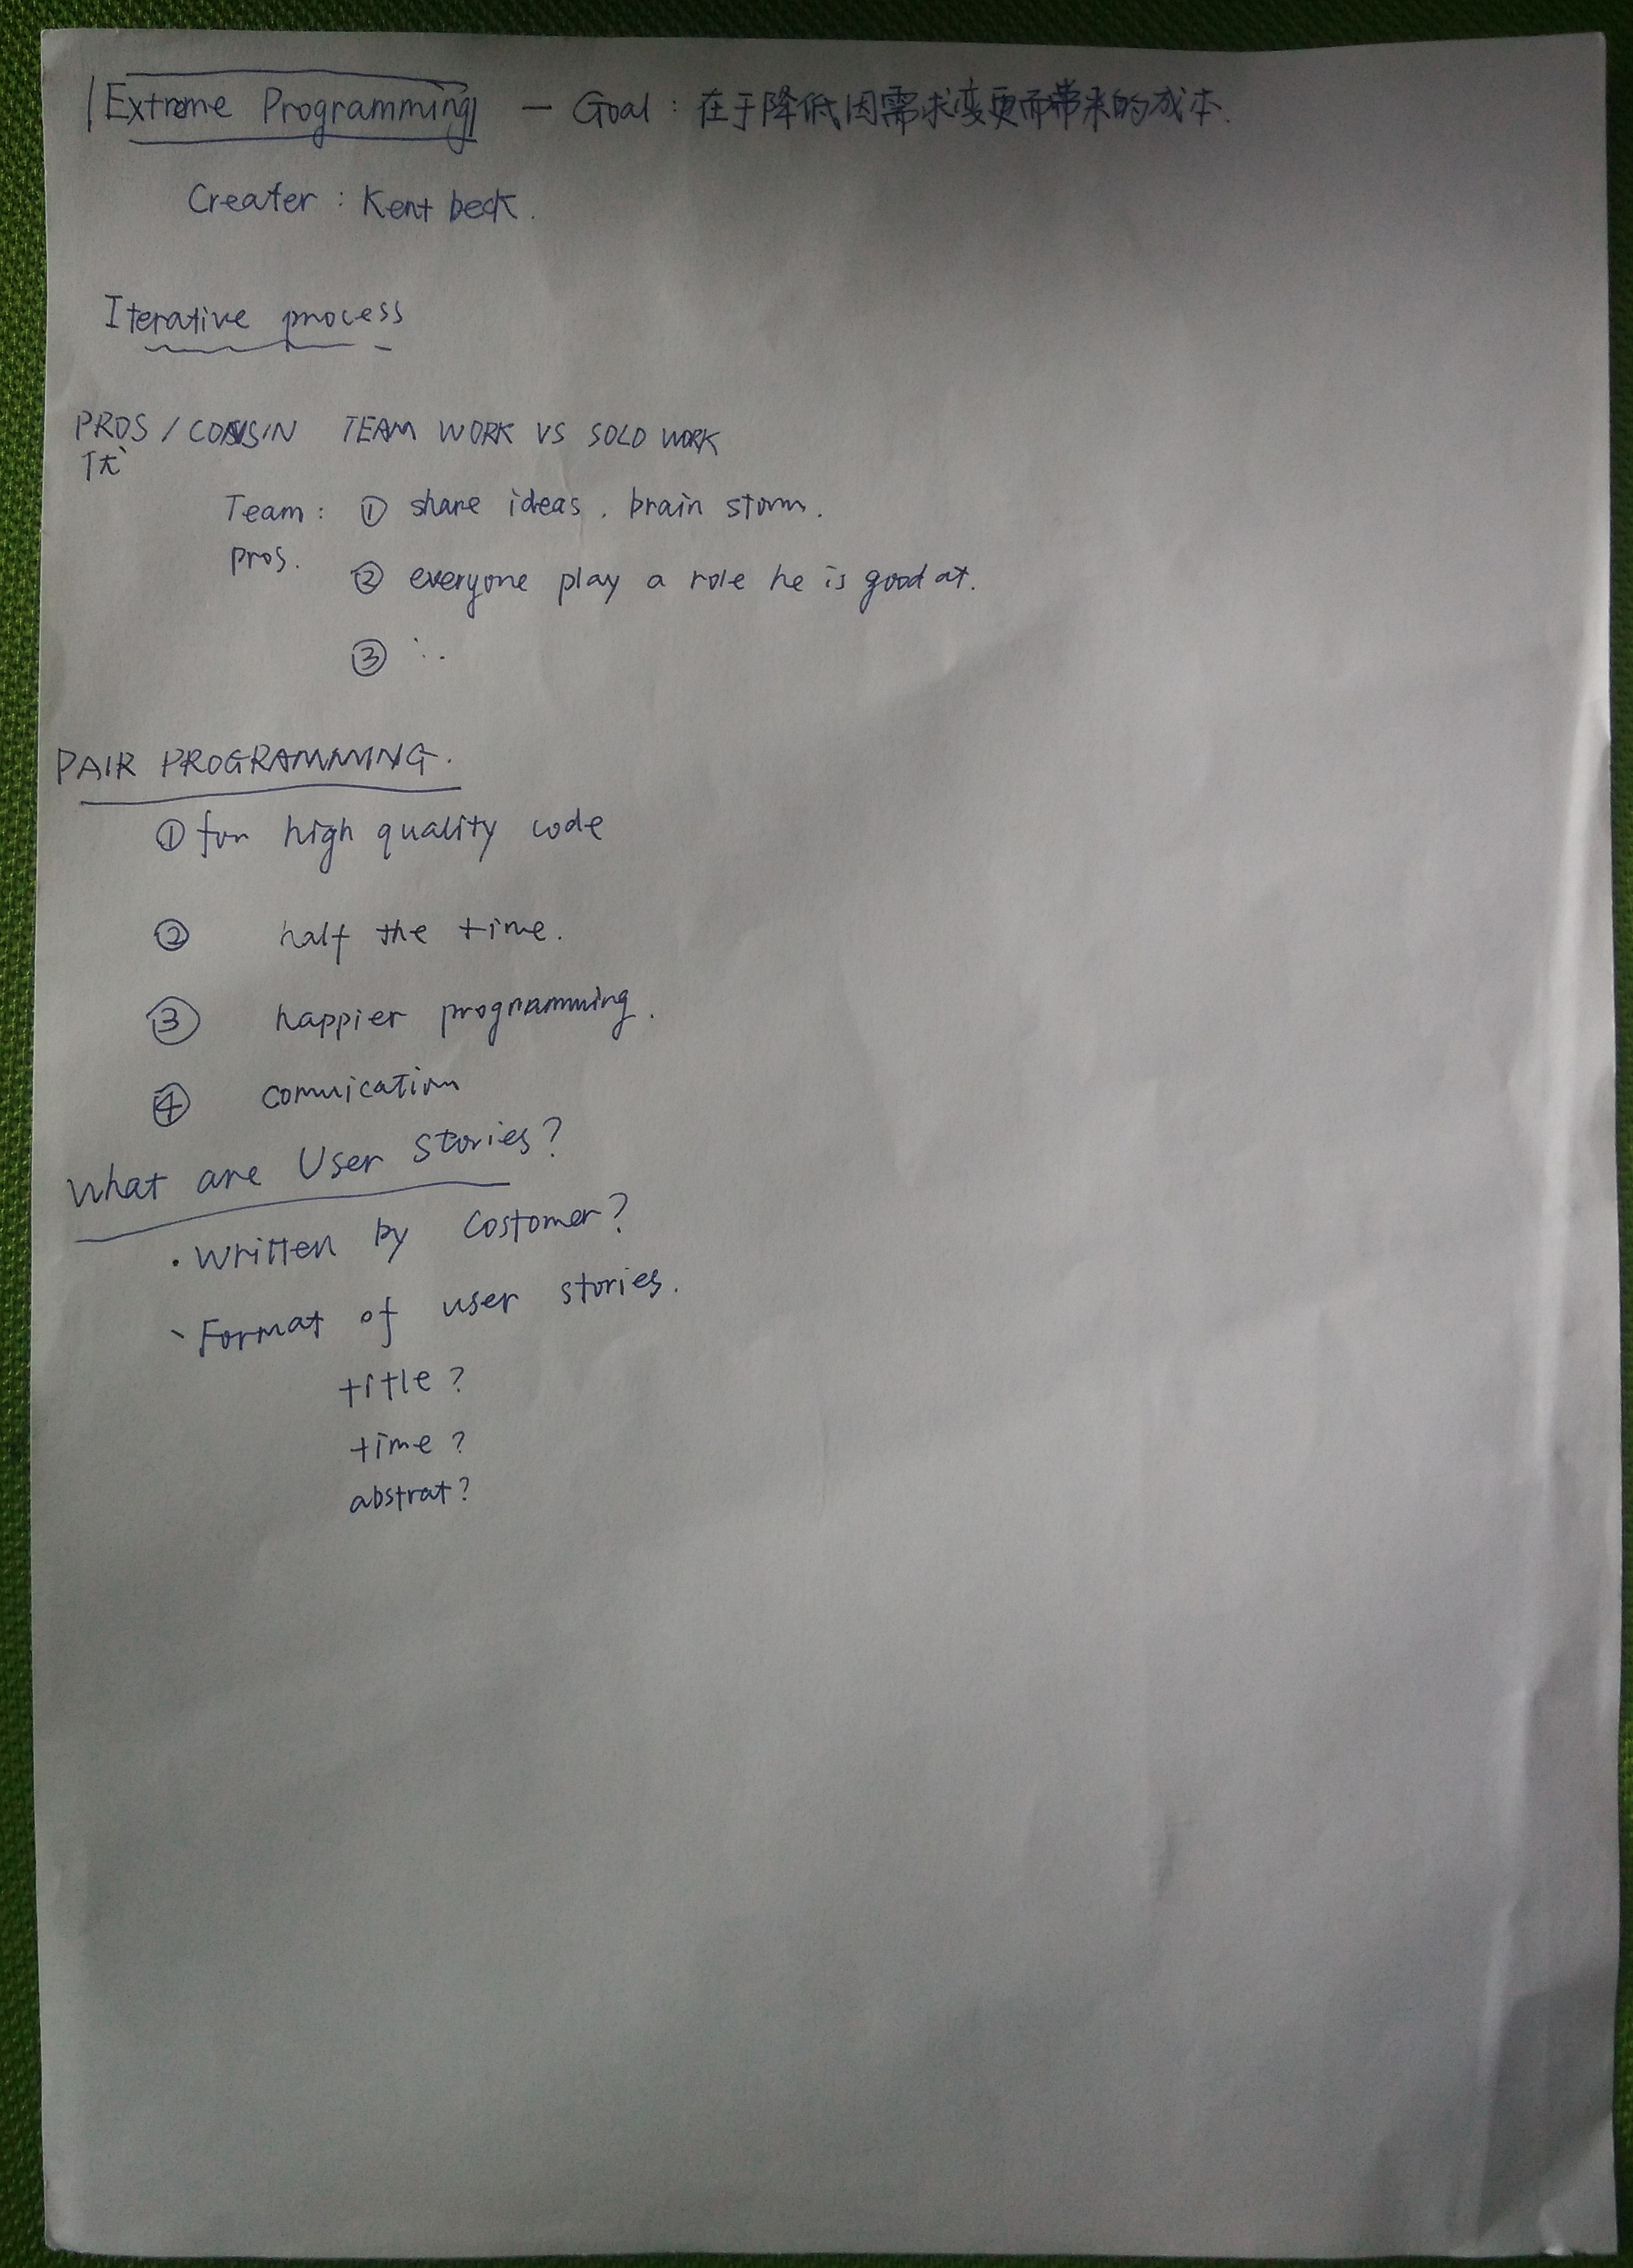 Extreme Programming — Goal: 在于降低因需求变更而带来的成本.
Creater: Kent beck.
Iterative process
PROS / CONS IN TEAM WORK VS SOLO WORK
优
Team: ① share ideas. brain storm.
pros.
② everyone play a role he is good at.
③ ...
PAIR PROGRAMMING.
① for high quality code
② half the time.
③ happier programming.
④ comnication
What are User Stories?
· Written by Costomer?
、Format of user stories.
title?
time?
abstrat?